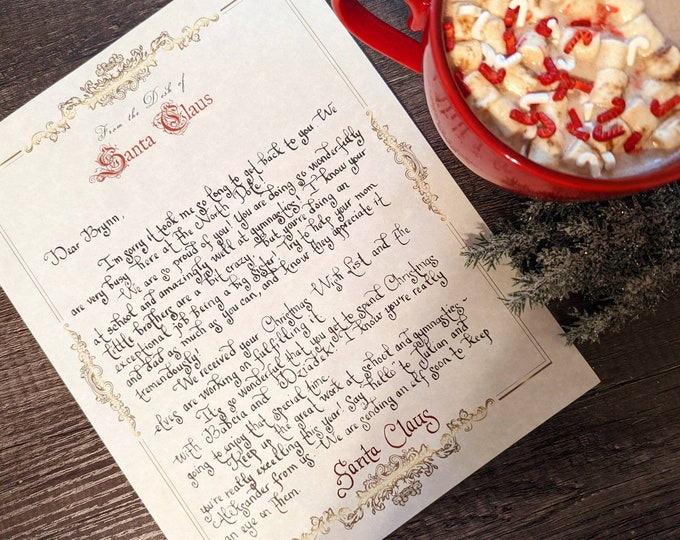 From the Desk of
Santa Claus
Dear Brynn,
I'm sorry it took me so long to get back to you. We
are very busy here at the North Pole!
We are so proud of you! You are doing so wonderfully
at school and amazingly well at gymnastics! I know your
little brothers are a bit crazy but you're doing an
exceptional job being a big sister. Try to help your mom
and dad as much as you can, and know they appreciate it
tremendously!
We received your Christmas Wish List and the
elves are working on fulfilling it.
It's so wonderful that you get to spend Christmas
with Babcia and Dziadek! I know you're really
going to enjoy that special time.
Keep up the great work at school and gymnastics-
you're really excelling this year! Say hello to Julian and
Aleksander from us. We are sending an elf soon to keep
an eye on them.
Santa Claus